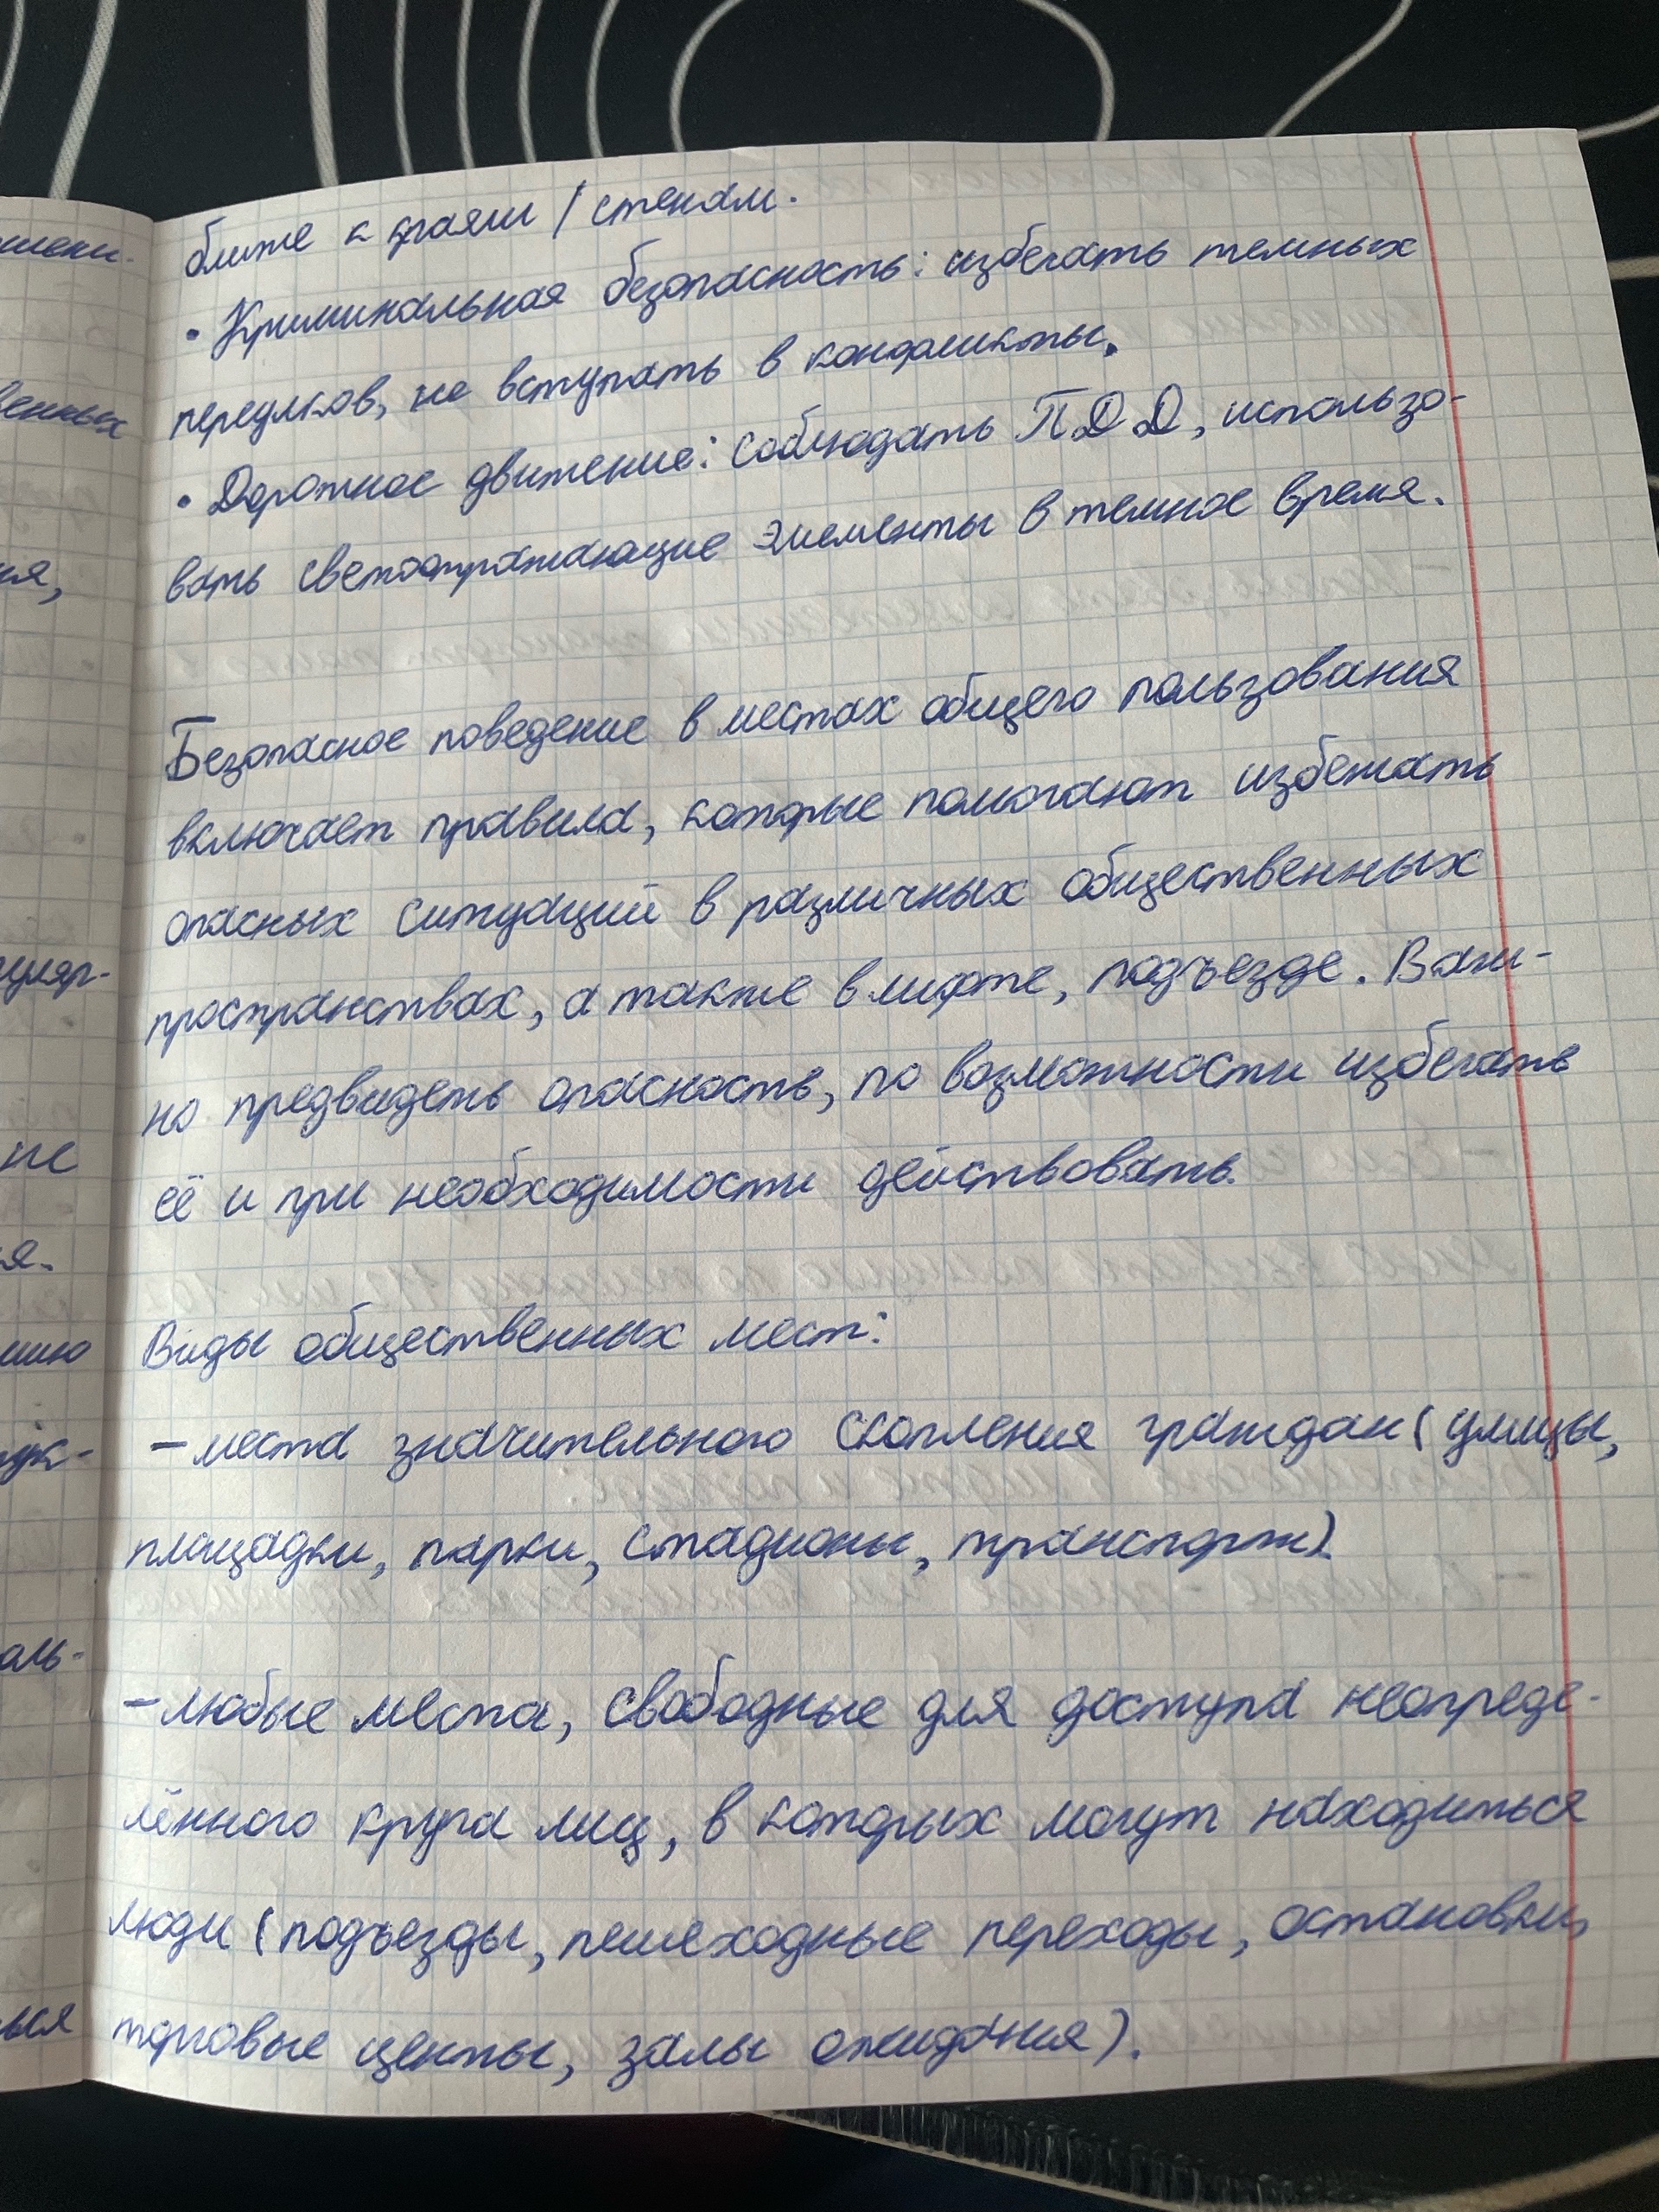 ближе к краям / стенам.
• Криминальная безопасность: избегать темных
переулков, не вступать в конфликты.
• Дорожное движение: соблюдать ПДД, использо-
вать светоотражающие элементы в темное время.
Безопасное поведение в местах общего пользования
включает правила, которые помогают избежать
опасных ситуаций в различных общественных
пространствах, а также в лифте, подъезде. Важ-
но предвидеть опасность, по возможности избегать
её и при необходимости действовать.
Виды общественных мест:
– места значительного скопления граждан (улицы,
площадки, парки, стадионы, транспорт).
– любые места, свободные для доступа неопреде-
лённого круга лиц, в которых могут находиться
люди (подъезды, пешеходные переходы, остановки,
торговые центы, залы ожидания).